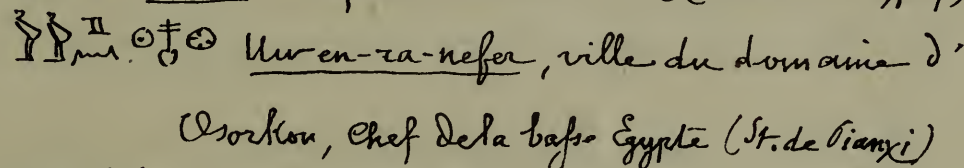 Uu-en-ra-nefer, ville du domaine d'
Osorkon, chef de la basse Égypte (St. de Pianxi)